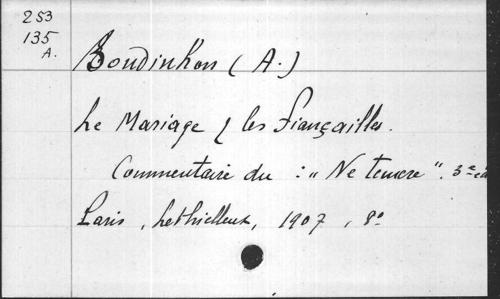 253
135
A.
Boudinhon (A.)
Le Mariage & les Fiançailles.
Commentaire du : "Ne temere". 3e éd
Paris, Lethielleux, 1907, 8o